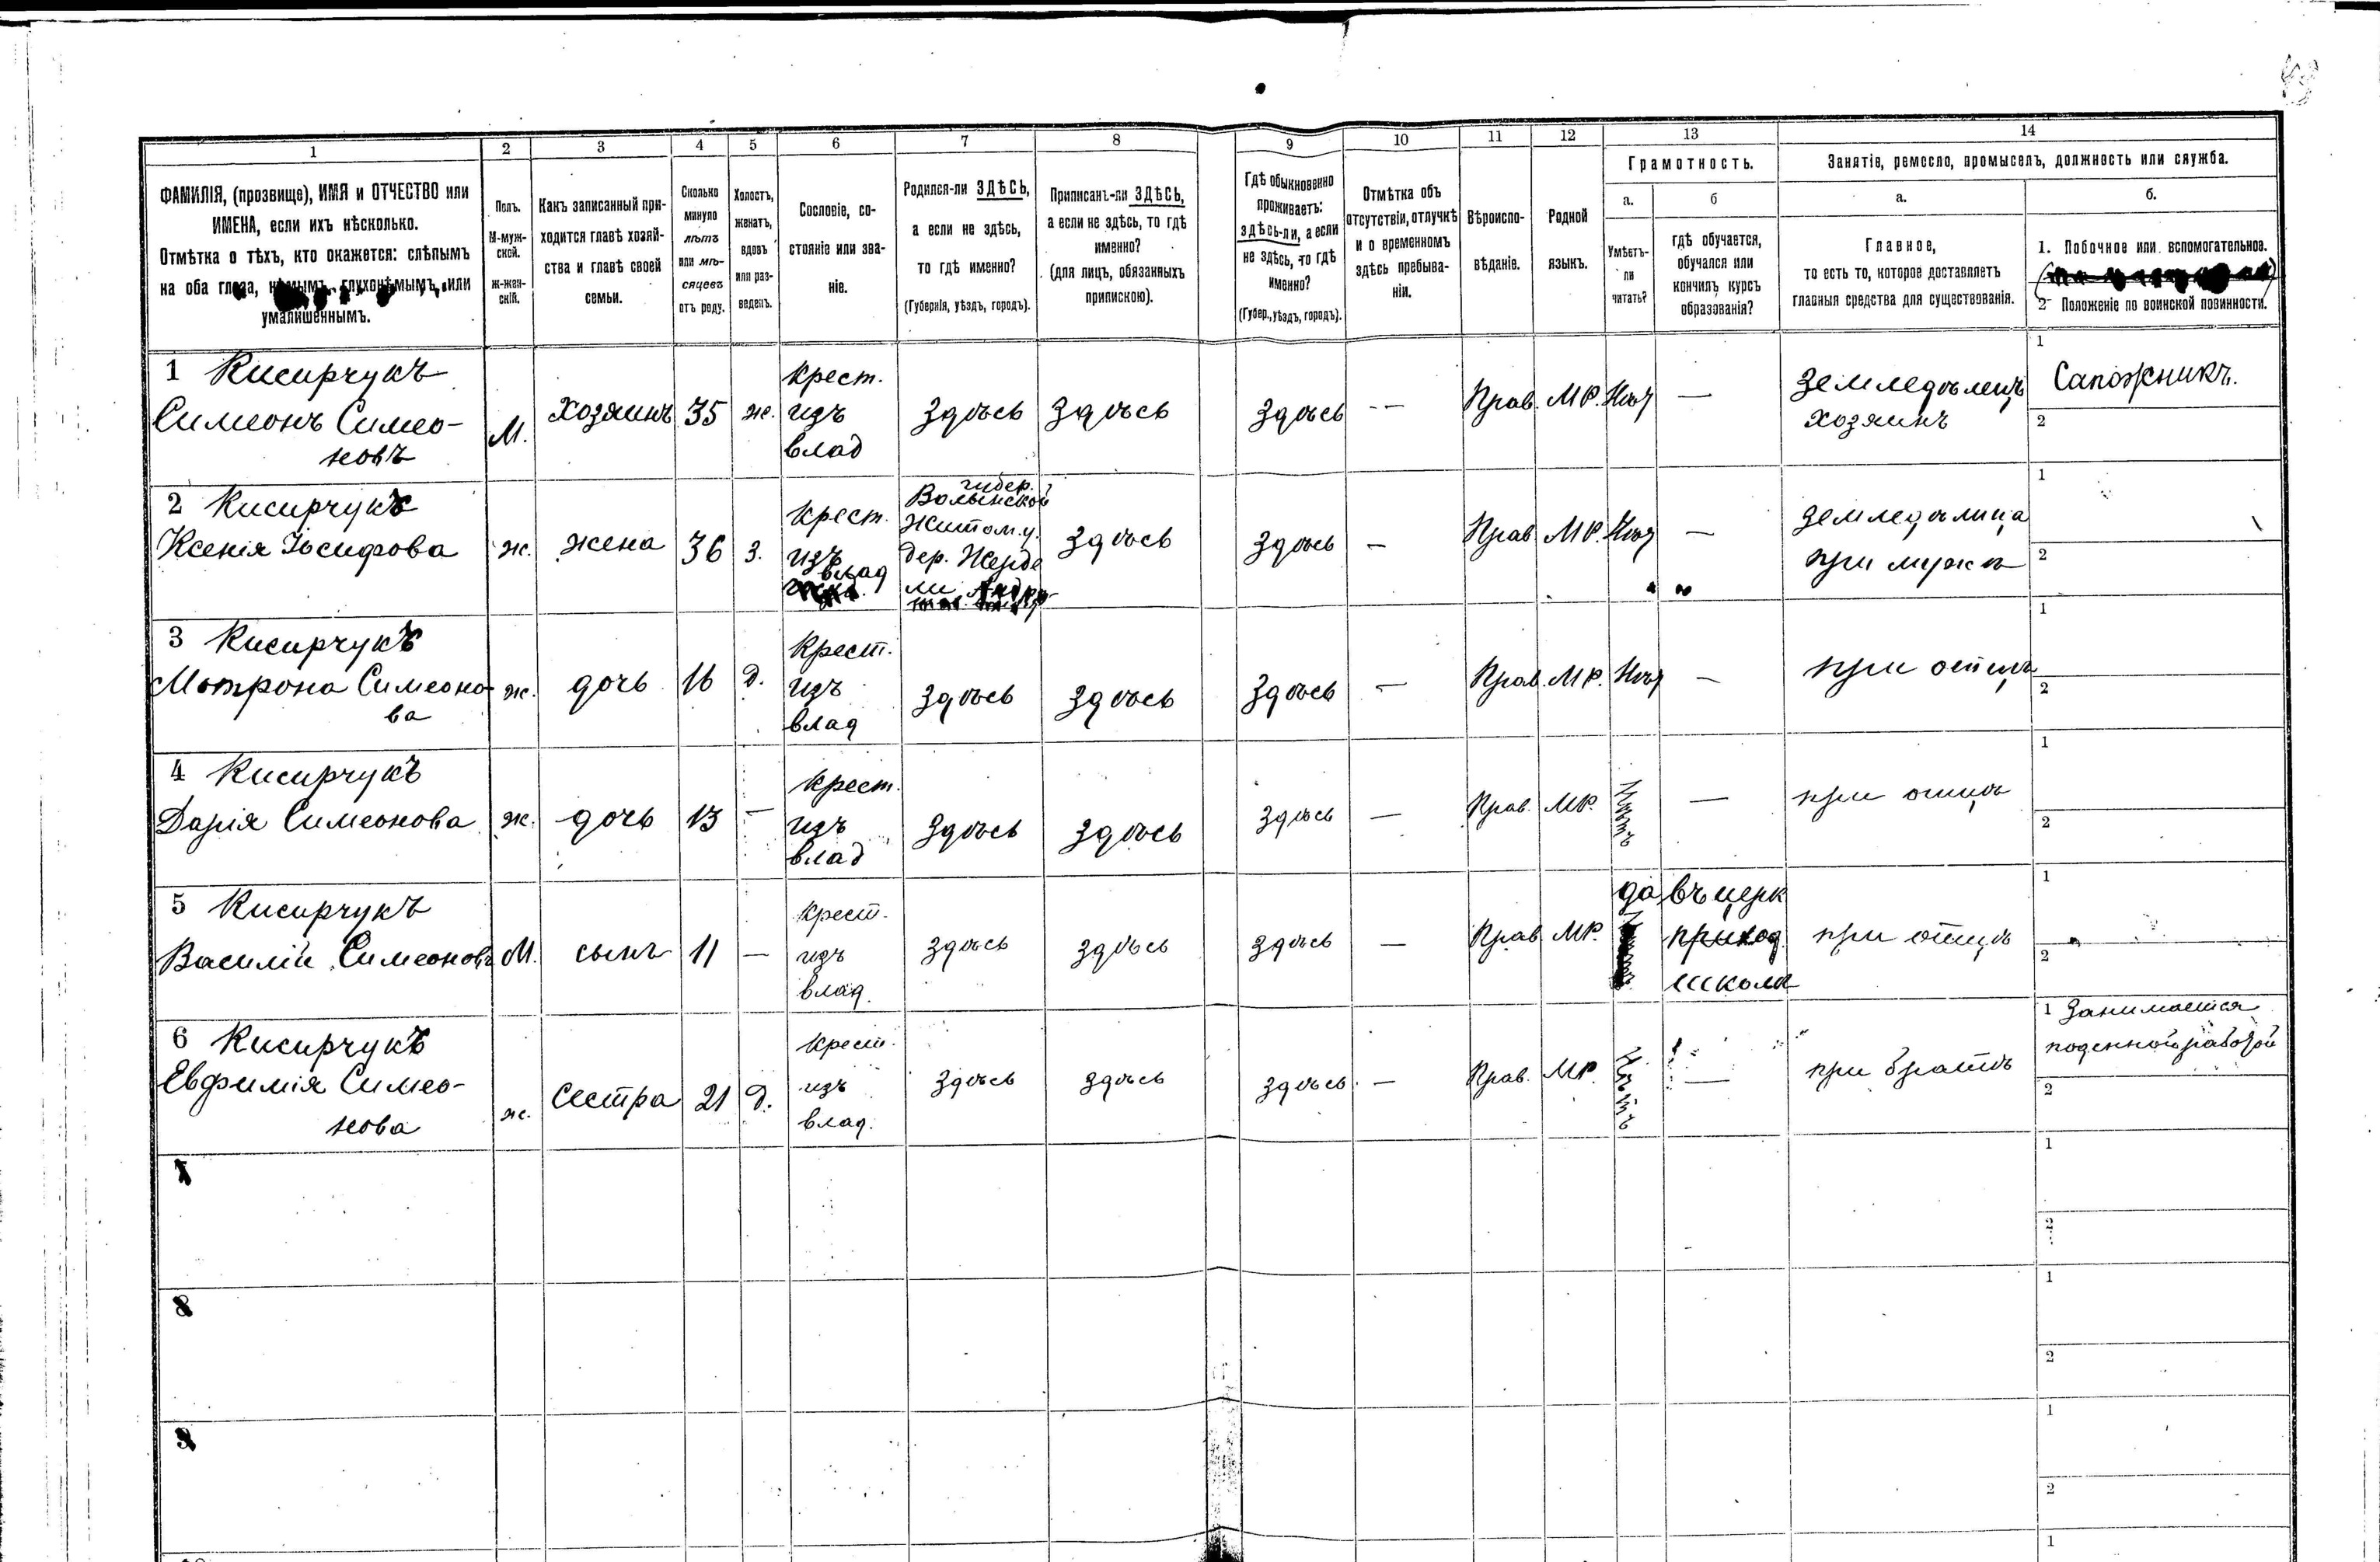 1 2 3 4 5 6 7 8 9 10 11 12 13 14
ФАМИЛІЯ, (прозвище), ИМЯ и ОТЧЕСТВО или
ИМЕНА, если ихъ нѣсколько.
Отмѣтка о тѣхъ, кто окажется: слѣпымъ
на оба глаза, нѣмымъ, глухонѣмымъ, или
умалишеннымъ.
Полъ.
М-муж-
ской.
ж-жен-
скій.
Какъ записанный при-
ходится главѣ хозяй-
ства и главѣ своей
семьи.
Сколько
минуло
лѣтъ
или мѣ-
сяцевъ
отъ роду.
Холостъ,
женатъ,
вдовъ
или раз-
веденъ.
Сословіе, со-
стояніе или зва-
ніе.
Родился-ли ЗДѢСЬ,
а если не здѣсь,
то гдѣ именно?
(Губернія, уѣздъ, городъ).
Приписанъ-ли ЗДѢСЬ,
а если не здѣсь, то гдѣ
именно?
(для лицъ, обязанныхъ
припискою).
Гдѣ обыкновенно
проживаетъ:
здѣсь-ли, а если
не здѣсь, то гдѣ
именно?
(Губер., уѣздъ, городъ).
Отмѣтка объ
отсутствіи, отлучкѣ
и о временномъ
здѣсь пребыва-
ніи.
Вѣроиспо-
вѣданіе.
Родной
языкъ.
Грамотность.
а.
Умѣетъ-
ли
читать?
б
гдѣ обучается,
обучался или
кончилъ курсъ
образованія?
Занятіе, ремесло, промыселъ, должность или служба.
а.
Главное,
то есть то, которое доставляетъ
главныя средства для существованія.
б.
1. Побочное или вспомогательное.
2 Положеніе по воинской повинности.
1 Кисирчукъ
Симеонъ Симео-
новъ
М.
Хозяинъ
35
ж.
крест.
изъ
влад
здѣсь
здѣсь
здѣсь
--
Прав
МР.
Нѣт
—
Земледѣлецъ
хозяинъ
1
Сапожникъ.
2
2 Кисирчукъ
Ксенія Іосифова
ж.
жена
36
З.
крест.
изъ
влад
губер.
Волынской
Житом. у.
дер. Жерде
ли
здѣсь
здѣсь
—
Прав
МР.
Нѣт
—
земледѣлица
при мужѣ
1
2
3 Кисирчукъ
Мотрона Симеоно-
ва
ж.
дочь
16
д.
Крест.
изъ
влад
здѣсь
здѣсь
здѣсь
—
Прав.
МР.
Нѣт
—
при отцѣ
1
2
4 Кисирчукъ
Дарія Симеонова
ж.
дочь
13
—
крест.
изъ
влад
здѣсь
здѣсь
здѣсь
—
Прав.
МР.
Нѣтъ
—
при отцѣ
1
2
5 Кисирчукъ
Василій Симеоновъ
М.
сынъ
11
—
крест.
изъ
влад.
здѣсь
здѣсь
здѣсь
—
Прав
МР.
да
въ церк
приход
школѣ
при отцѣ
1
2
6 Кисирчукъ
Евфимія Симео-
нова
ж.
Сестра
21
д.
крест.
изъ
влад.
здѣсь
здѣсь
здѣсь
—
Прав.
МР.
Нѣтъ
—
при братѣ
1 Занимается
поденной работой
2
7
1
2
8
1
2
9
1
2
1